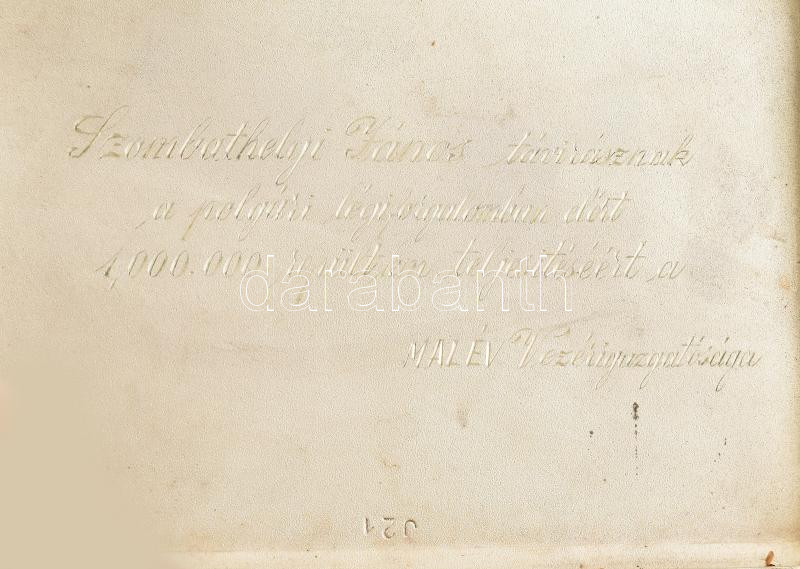 Szombathelyi János távirásznak
a polgári légiforgalomban elért
1,000.000 repültkm teljesitéséért a
MALÉV Vezérigazgatósága
darabanth
J21